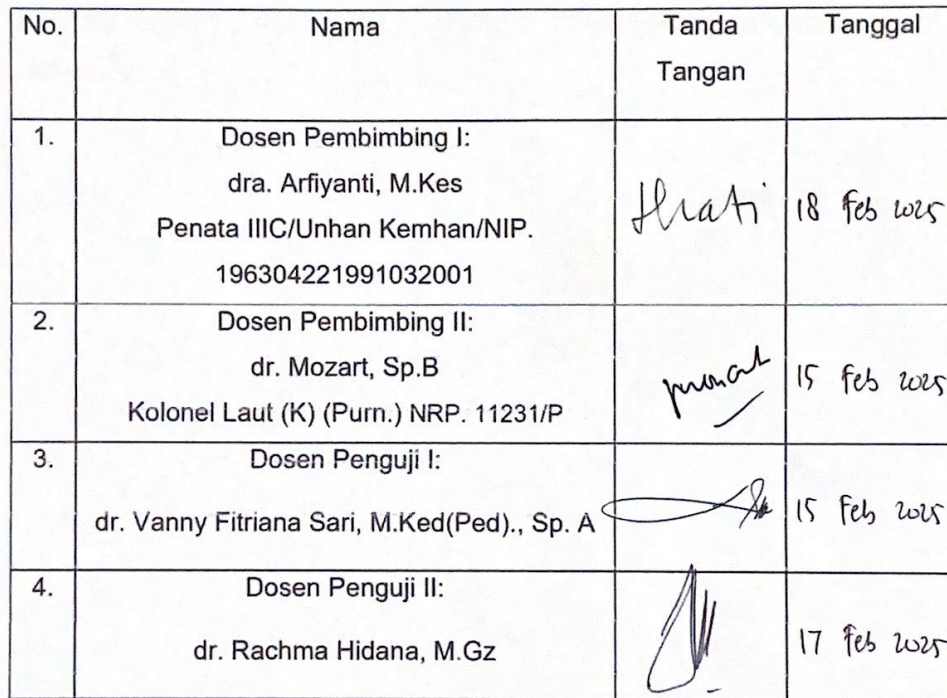 No. Nama Tanda Tangan Tanggal
1. Dosen Pembimbing I:
dra. Arfiyanti, M.Kes
Penata IIIC/Unhan Kemhan/NIP.
196304221991032001
18 Feb 2025
2. Dosen Pembimbing II:
dr. Mozart, Sp.B
Kolonel Laut (K) (Purn.) NRP. 11231/P
15 Feb 2025
3. Dosen Penguji I:
dr. Vanny Fitriana Sari, M.Ked(Ped)., Sp. A
15 Feb 2025
4. Dosen Penguji II:
dr. Rachma Hidana, M.Gz
17 Feb 2025